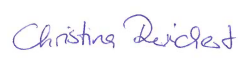 Christina Reichert